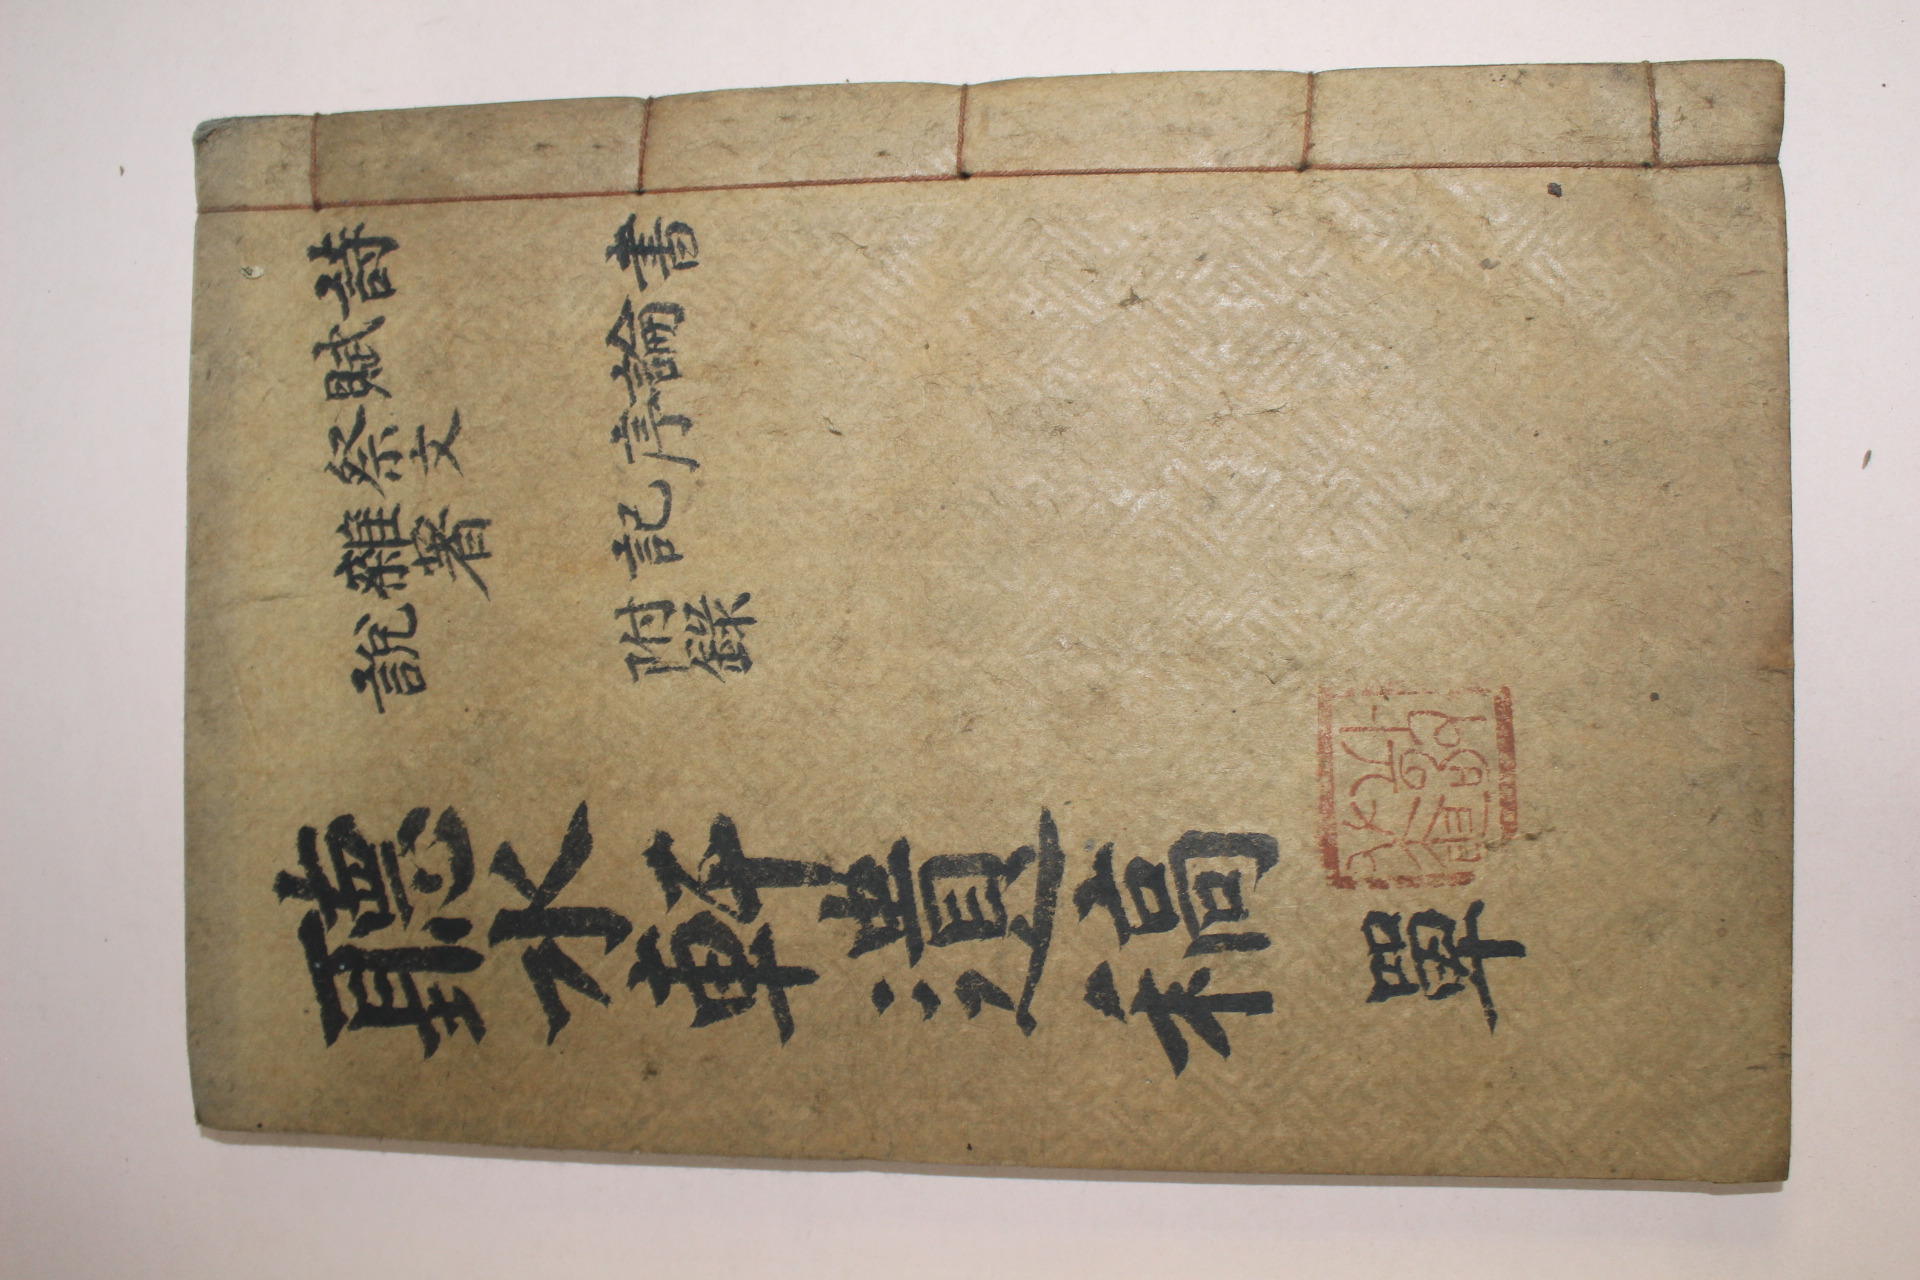 詩賦祭文雜著說
書論序記附錄
聽水軒遺稿 單